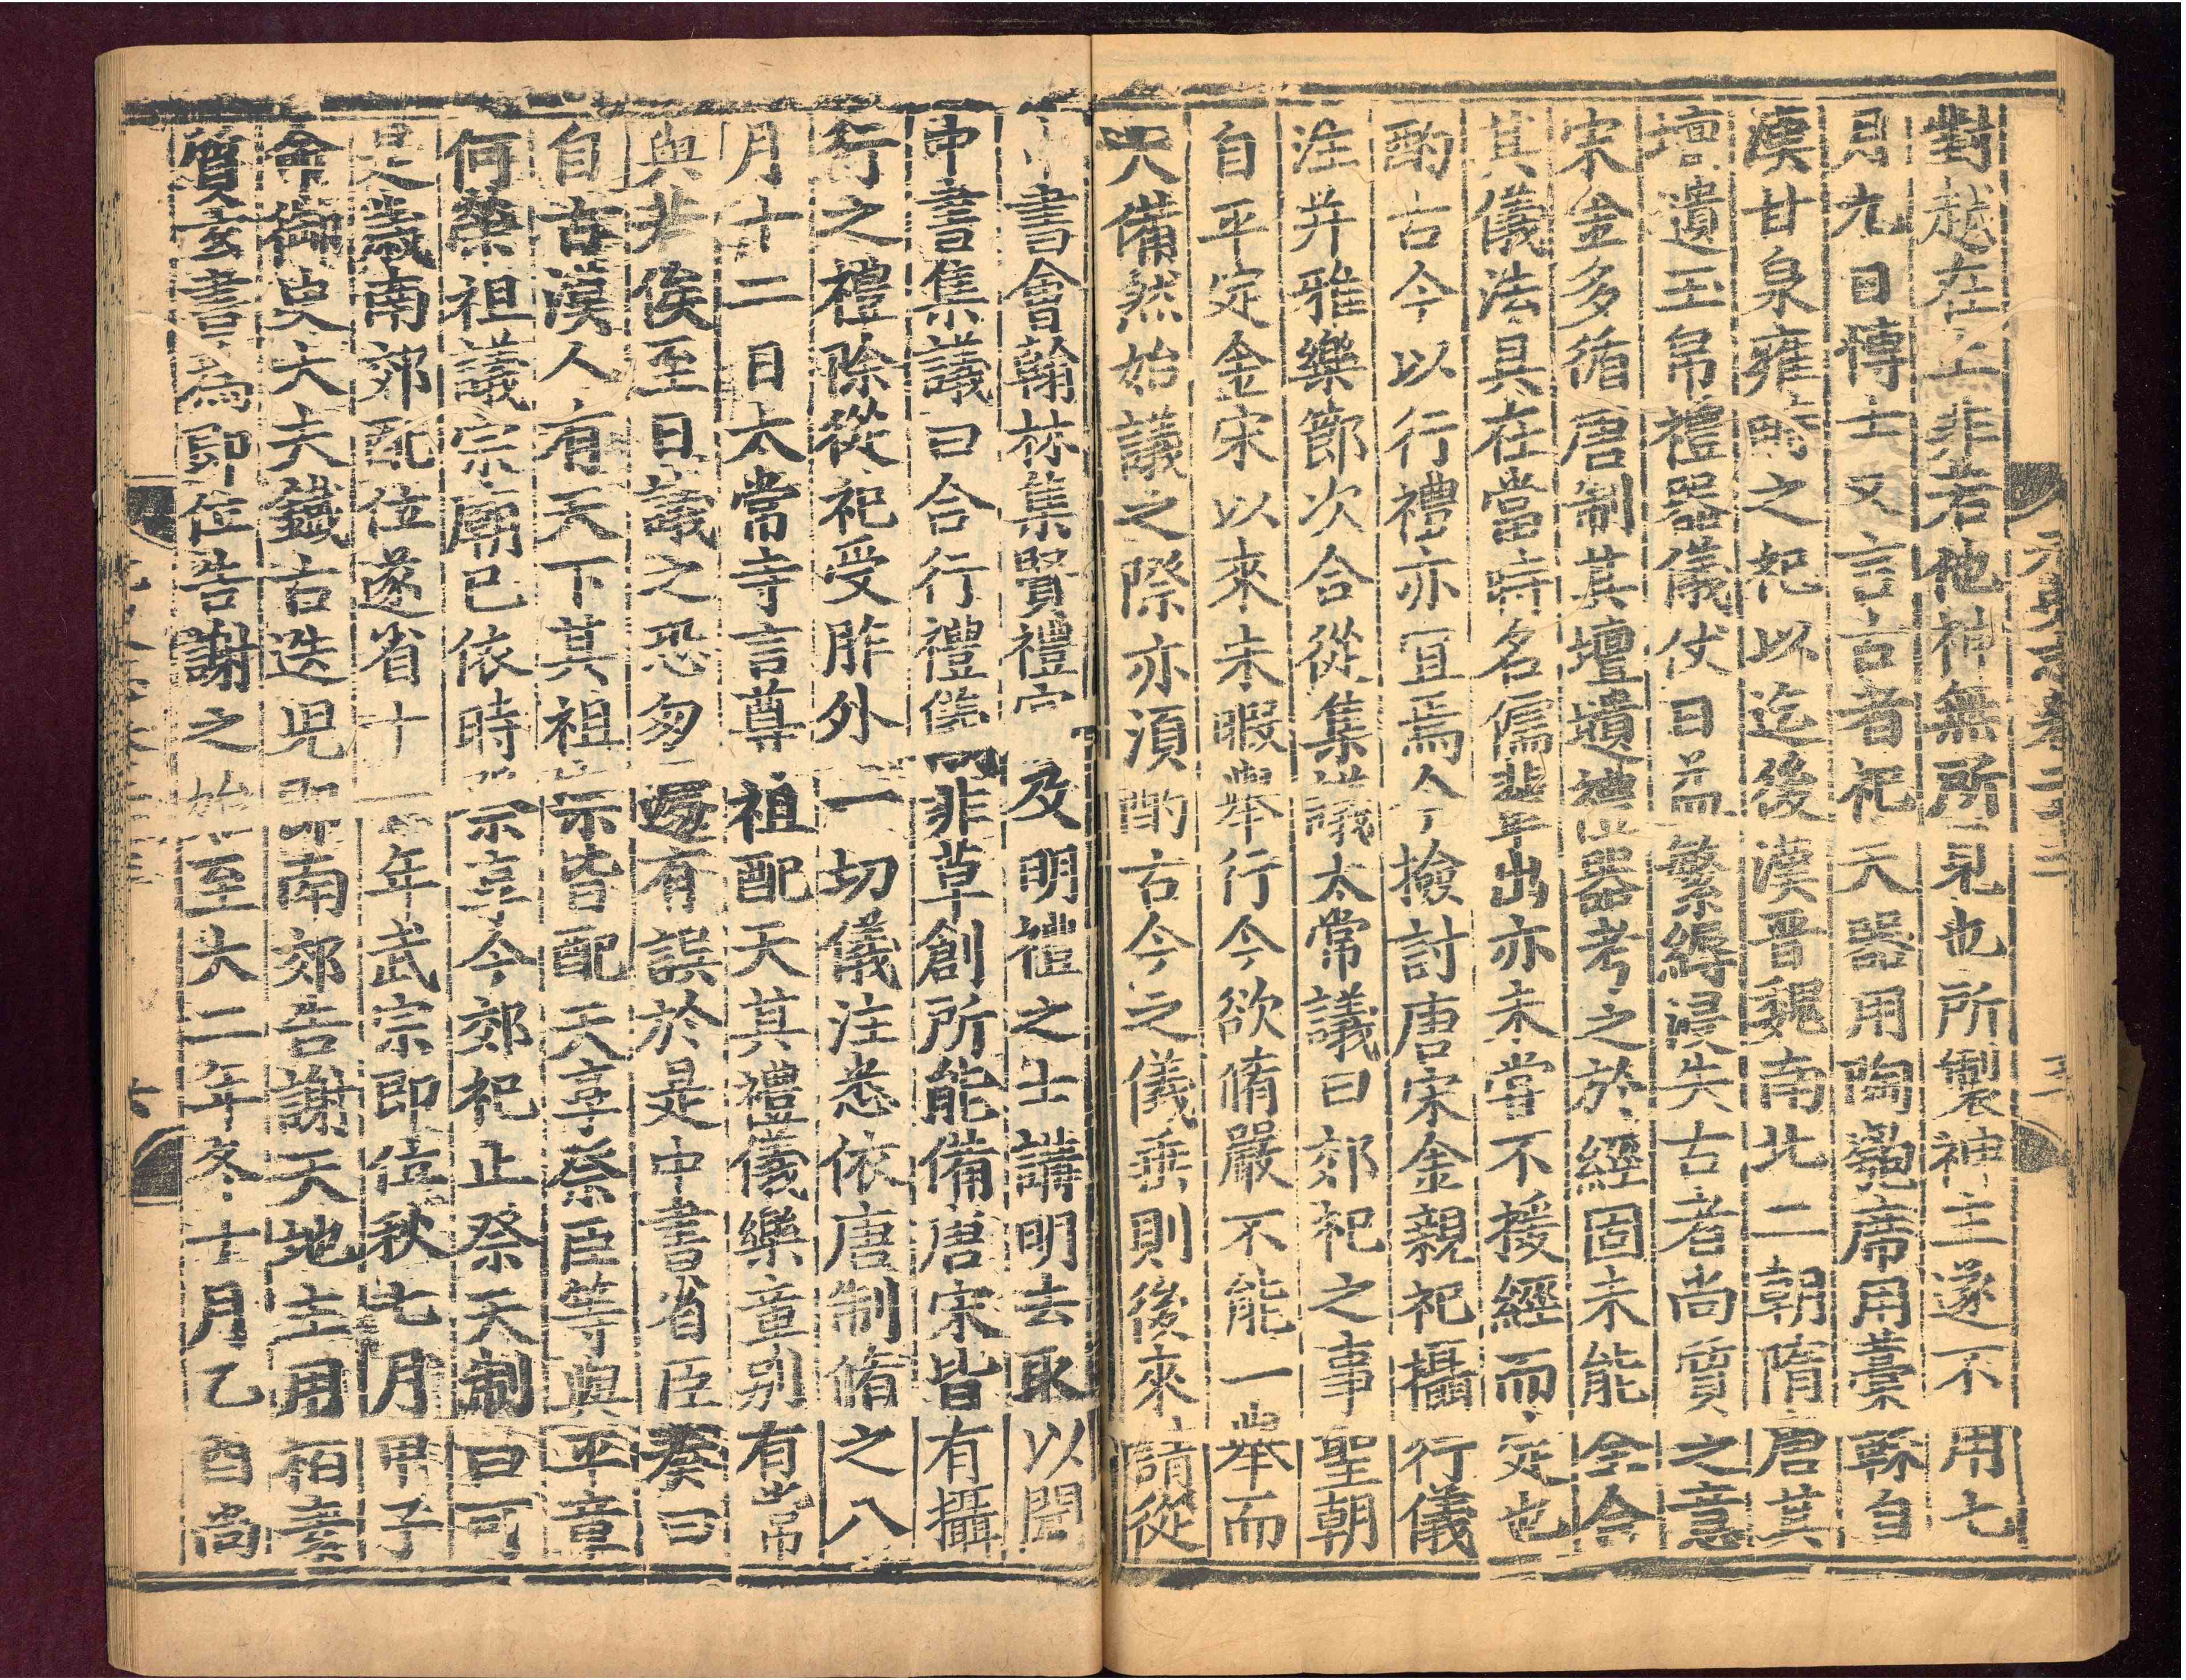 對越在上非若他神無所見也所製神主遂不用七
月九日博士又言古者祀天器用陶匏席用藁秸自
漢甘泉雍畤之祀以迄後漢晉魏南北二朝隋唐其
壇壝玉帛禮器儀仗日益繁縟浸失古者尚質之意
宋金多循唐制其壇壝禮器考之於經固未能全合
其儀法具在當時名儒輩出亦未嘗不援經而定也
酌古今以行禮亦宜焉今檢討唐宋金親祀攝行儀
注并雅樂節次合從集議太常議曰郊祀之事聖朝
自平定金宋以來未暇舉行今欲脩嚴不能一舉而
大備然始議之際亦須酌古今之儀垂則後來請從
中書會翰林集賢禮官及明禮之士講明去取以聞
中書集議曰合行禮儀非草創所能備唐宋皆有攝
行之禮除從祀受胙外一切儀注悉依唐制脩之八
月十二日太常寺言尊祖配天其禮儀樂章別有常
典若俟至日議之恐匆遽有誤於是中書省臣奏曰
自古漢人有天下其祖宗皆配天享祭臣等與平章
何榮祖議宗廟已依時祭享今郊祀止祭天制曰可
是歲南郊配位遂省十一年武宗即位秋七月甲子
命御史大夫鐵古迭兒即南郊告謝天地主用柏素
質玄書爲即位告謝之始至大二年冬十月乙酉尚